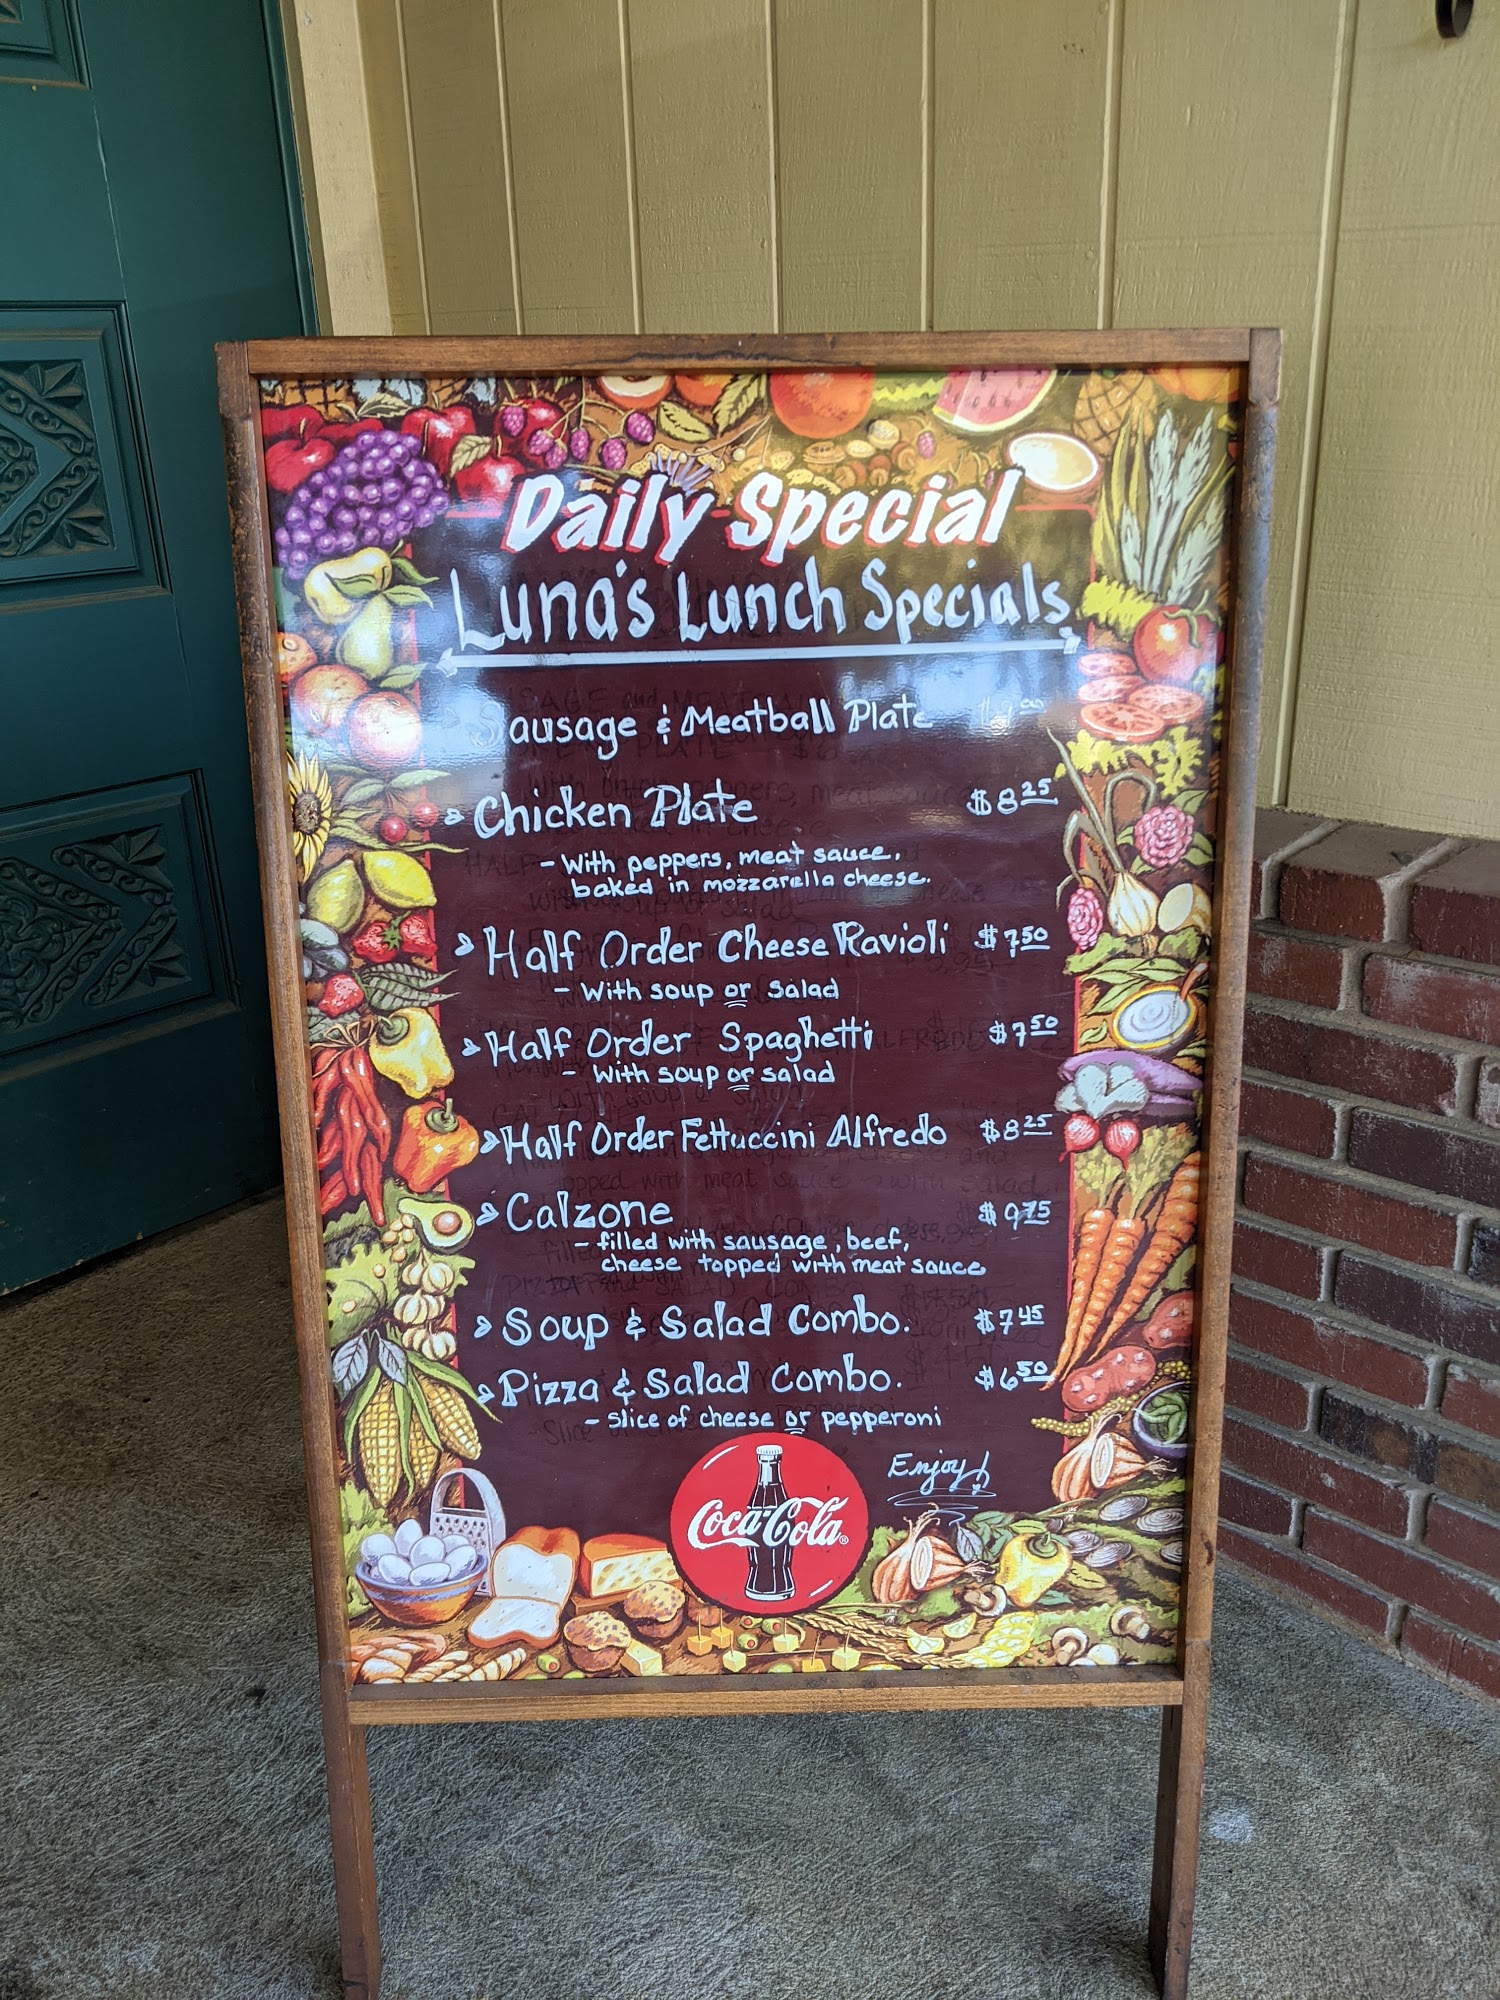 Daily Special
Luna's Lunch Specials
Sausage & Meatball Plate
Chicken Plate $8.25
- With peppers, meat sauce,
baked in mozzarella cheese.
Half Order Cheese Ravioli $7.50
- With soup or salad
Half Order Spaghetti $7.50
- With soup or salad
Half Order Fettuccini Alfredo $8.25
Calzone $9.75
- filled with sausage, beef,
cheese topped with meat sauce
Soup & Salad Combo. $7.45
Pizza & Salad Combo. $6.50
- Slice of cheese or pepperoni
Enjoy!
Coca-Cola®